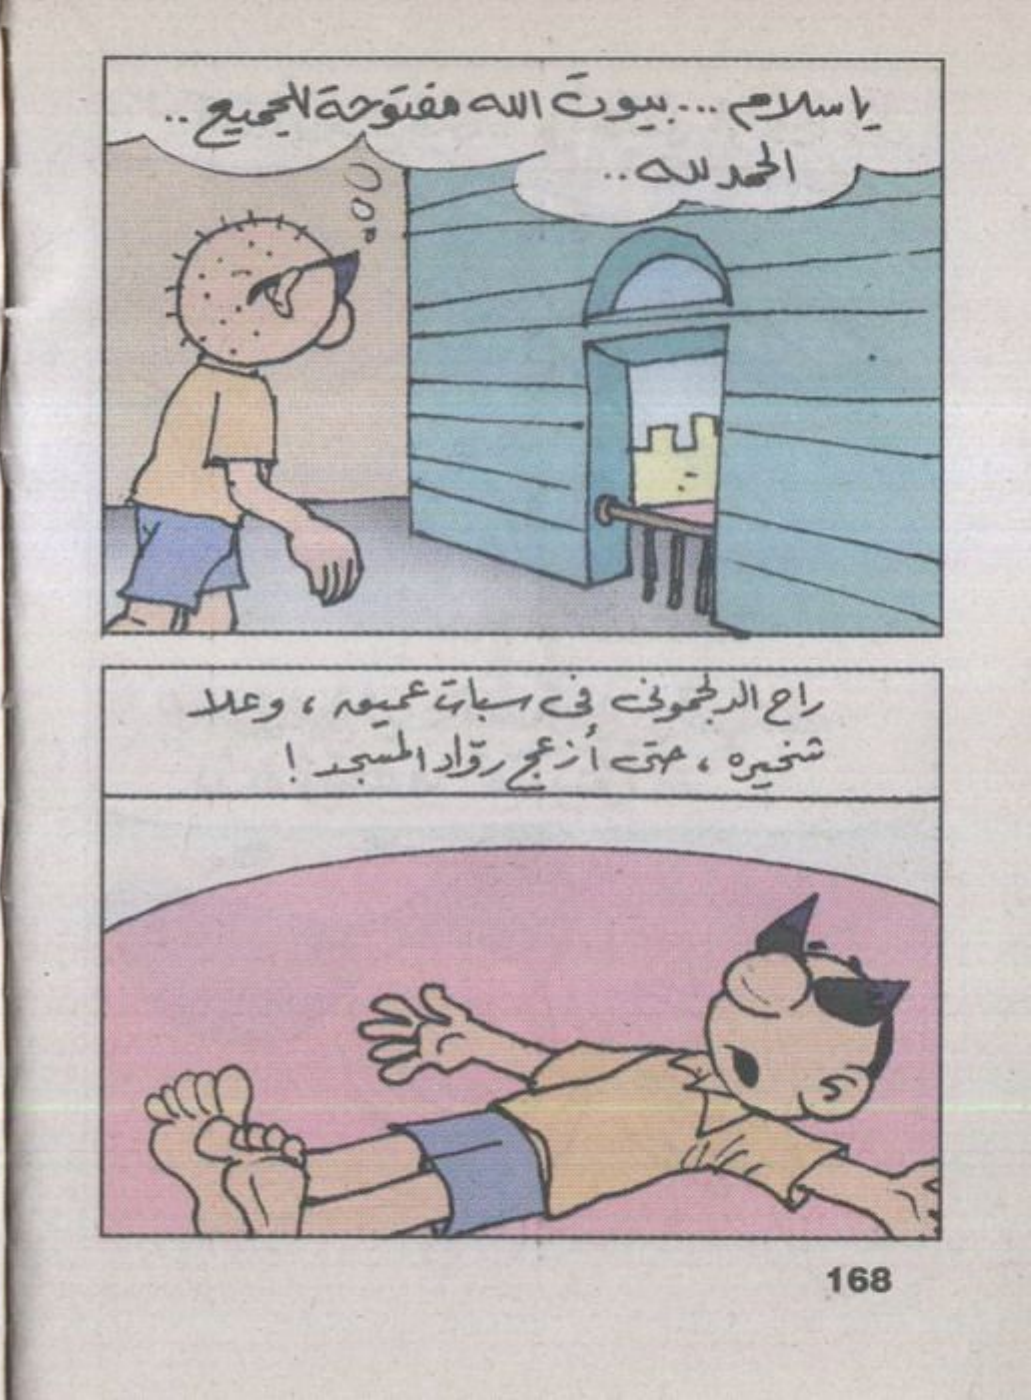 ياسلام... بيوت الله مفتوحة للجميع..
الحمد لله..
راح الدلجموني في سبات عميق، وعلا
شخيره، حتى أزعج روّاد المسجد!
168